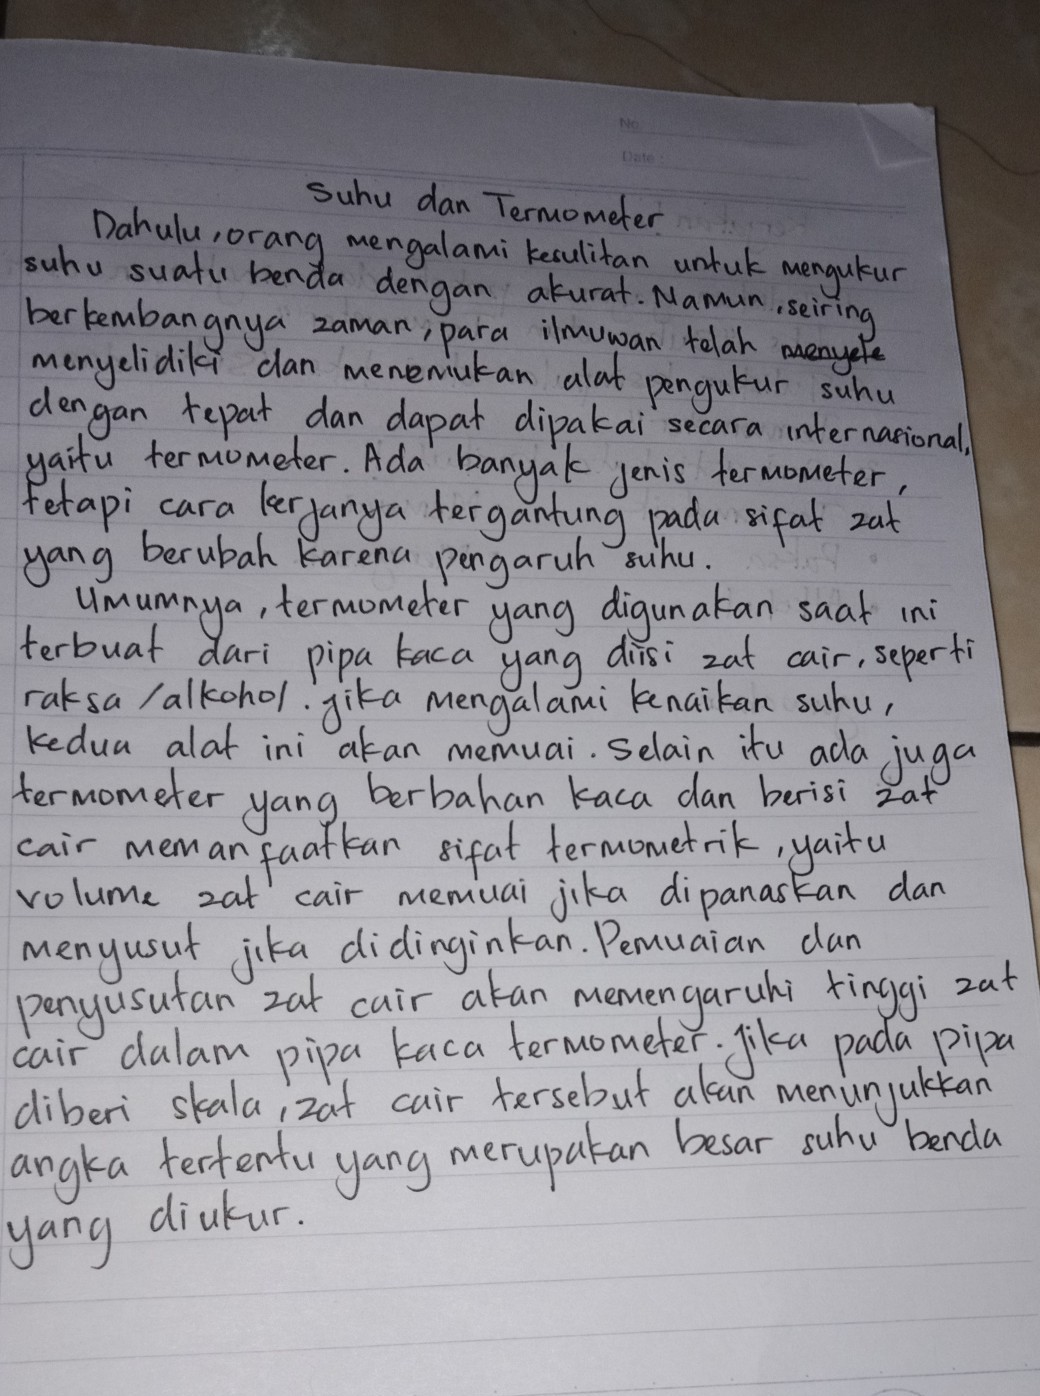 No
Date :
Suhu dan Termometer
Dahulu, orang mengalami kesulitan untuk mengukur
suhu suatu benda dengan akurat. Namun, seiring
berkembangnya zaman, para ilmuwan telah menyele
menyelidiki dan menemukan alat pengukur suhu
dengan tepat dan dapat dipakai secara internasional,
yaitu termometer. Ada banyak jenis termometer,
tetapi cara kerjanya tergantung pada sifat zat
yang berubah karena pengaruh suhu.
Umumnya, termometer yang digunakan saat ini
terbuat dari pipa kaca yang diisi zat cair, seperti
raksa /alkohol. Jika mengalami kenaikan suhu,
kedua alat ini akan memuai. Selain itu ada juga
termometer yang berbahan kaca dan berisi zat
cair memanfaatkan sifat termometrik, yaitu
volume zat cair memuai jika dipanaskan dan
menyusut jika didinginkan. Pemuaian dan
penyusutan zat cair akan memengaruhi tinggi zat
cair dalam pipa kaca termometer. Jika pada pipa
diberi skala, zat cair tersebut akan menunjukkan
angka tertentu yang merupakan besar suhu benda
yang diukur.